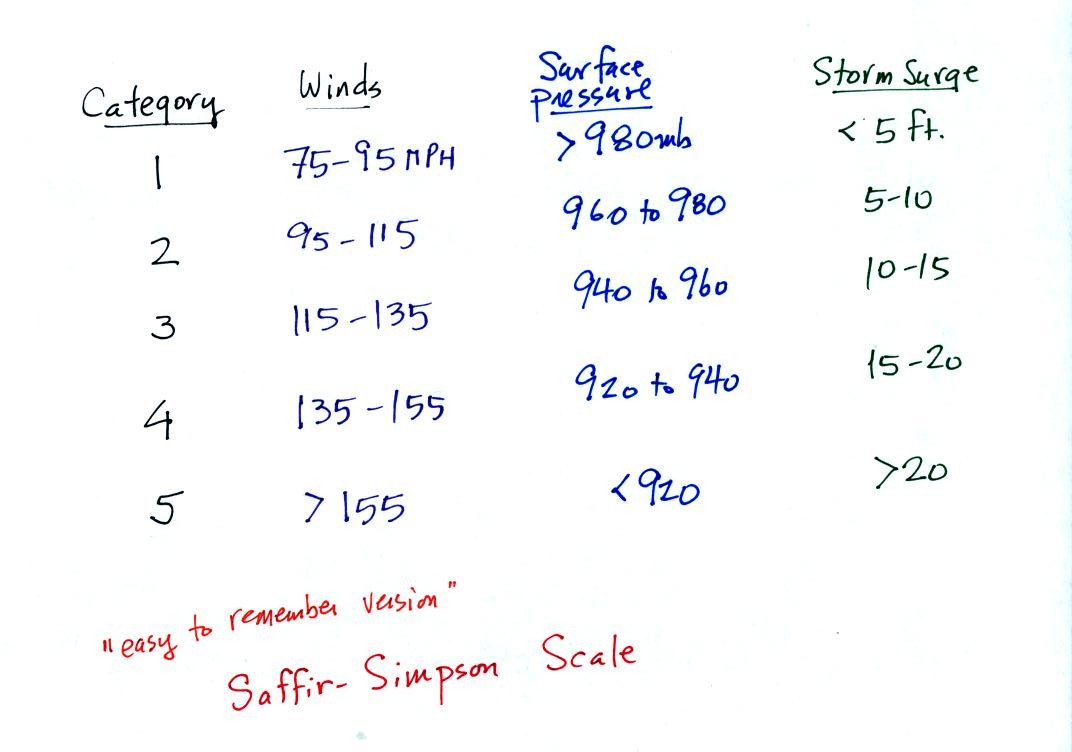 Category Winds Surface Pressure Storm Surge
1 75-95 MPH >980mb < 5 ft.
2 95-115 960 to 980 5-10
3 115-135 940 to 960 10-15
4 135-155 920 to 940 15-20
5 >155 <920 >20
"easy to remember version"
Saffir-Simpson Scale